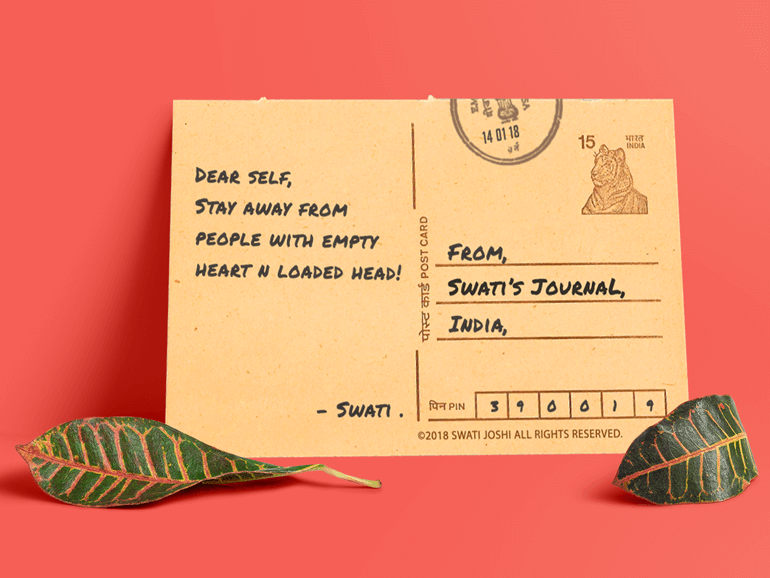 DEAR SELF,
STAY AWAY FROM
PEOPLE WITH EMPTY
HEART N LOADED HEAD!
- SWATI .
14 01 18
15 भारत
INDIA
पोस्ट कार्ड POST CARD
FROM,
SWATI'S JOURNAL,
INDIA,
पिन PIN 3 9 0 0 1 9
©2018 SWATI JOSHI ALL RIGHTS RESERVED.